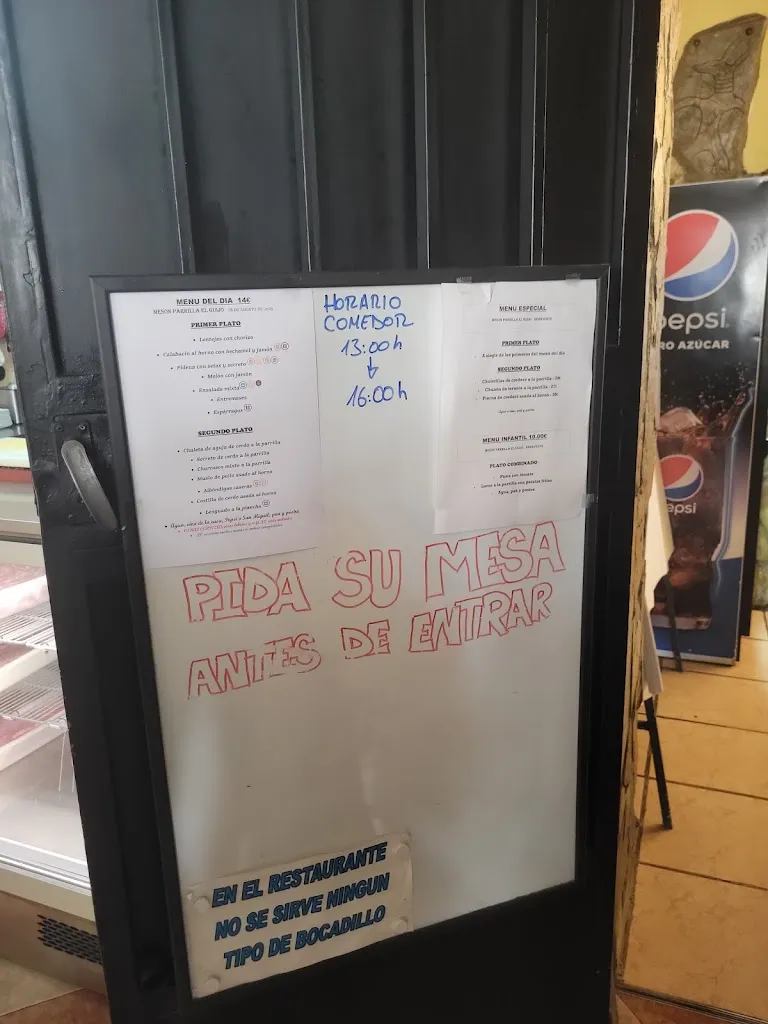 MENU DEL DIA 14€
MESON PARRILLA EL GUIJO
PRIMER PLATO
Lentejas con chorizo
Calabacín al horno con bechamel y jamón
Fideua con setas y secreto
Melón con jamón
Ensalada mixta
Entremeses
Espárragos
SEGUNDO PLATO
Chuleta de aguja de cerdo a la parrilla
Secreto de cerdo a la parrilla
Churrasco mixto a la parrilla
Muslo de pollo asado al horno
Albóndigas caseras
Costilla de cerdo asada al horno
Lenguado a la plancha
Agua, vino de la casa, Pepsi o San Miguel, pan y postre
HORARIO
COMEDOR
13:00h
↓
16:00h
MENU ESPECIAL
PRIMER PLATO
A elegir de los primeros del menú del día
SEGUNDO PLATO
Chuletillas de cordero a la parrilla
Chuleta de ternera a la parrilla
Pierna de cordero asada al horno
Agua, pan y postre
MENU INFANTIL 10.00€
PLATO COMBINADO
Pasta con tomate
Lomo a la parrilla con patatas fritas
Agua, pan y postre
PIDA SU MESA
ANTES DE ENTRAR
EN EL RESTAURANTE
NO SE SIRVE NINGUN
TIPO DE BOCADILLO
pepsi
RO AZÚCAR
psi